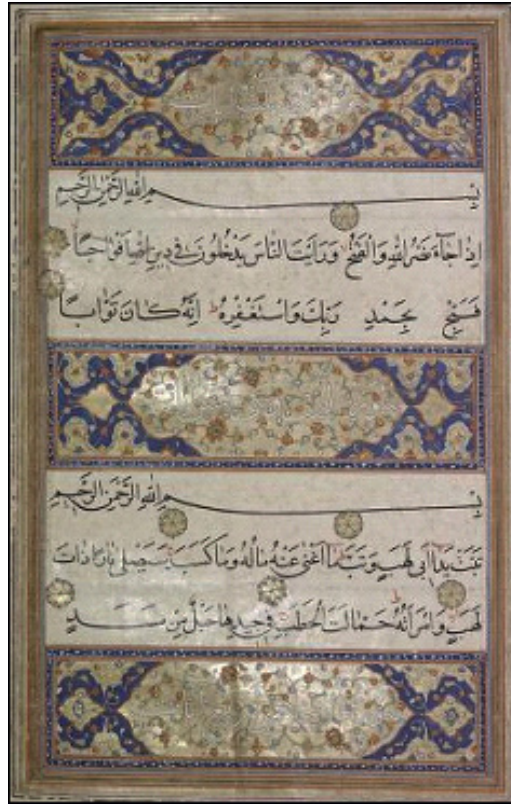 بسم الله الرحمن الرحيم
اذا جاء نصر الله والفتح ورايت الناس يدخلون في دين الله افواجا
فسبح بحمد ربك واستغفره انه كان توابا
بسم الله الرحمن الرحيم
تبت يدا ابي لهب وتب ما اغنى عنه ماله وما كسب سيصلى نارا ذات
لهب وامراته حمالة الحطب في جيدها حبل من مسد